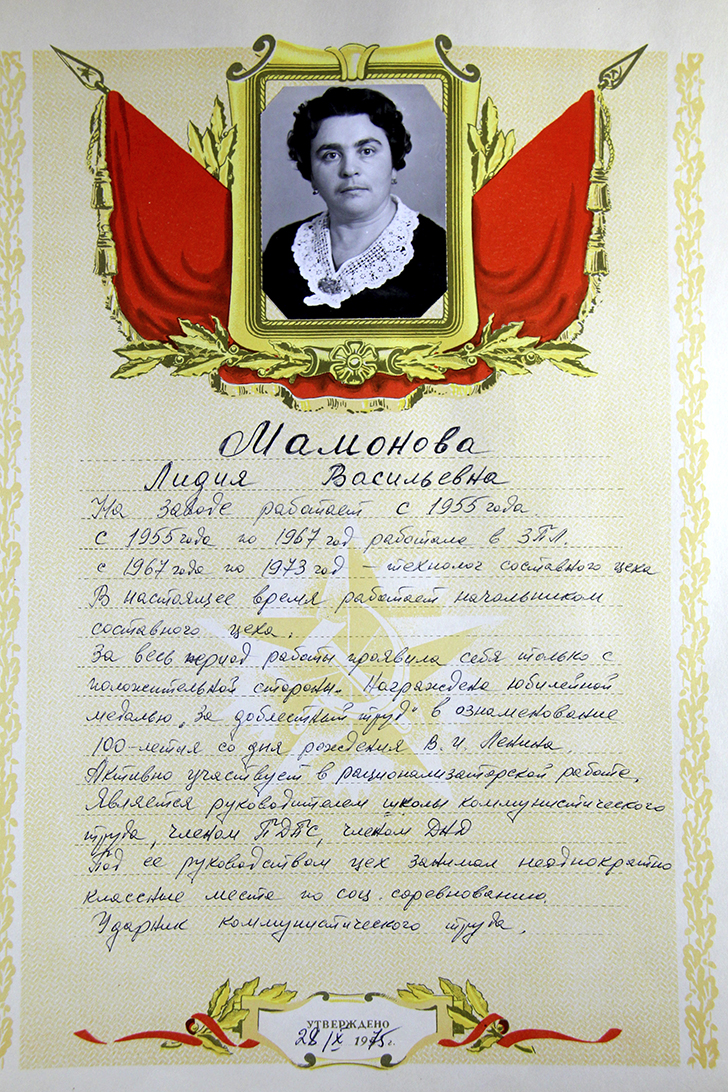 Мамонова
Лидия Васильевна
На заводе работает с 1955 года.
с 1955 года по 1967 год работала в ЗПЛ.
с 1967 года по 1973 год – технолог составного цеха
В настоящее время работает начальником
составного цеха.
За весь период работы проявила себя только с
положительной стороны. Награждена юбилейной
медалью „За доблестный труд" в ознаменование
100-летия со дня рождения В. И. Ленина.
Активно участвует в рационализаторской работе.
Является руководителем школы коммунистического
труда, членом ПДПС, членом ДНД
Под ее руководством цех занимал неоднократно
классные места по соц. соревнованию.
Ударник коммунистического труда.
УТВЕРЖДЕНО
28/IX 1975 г.